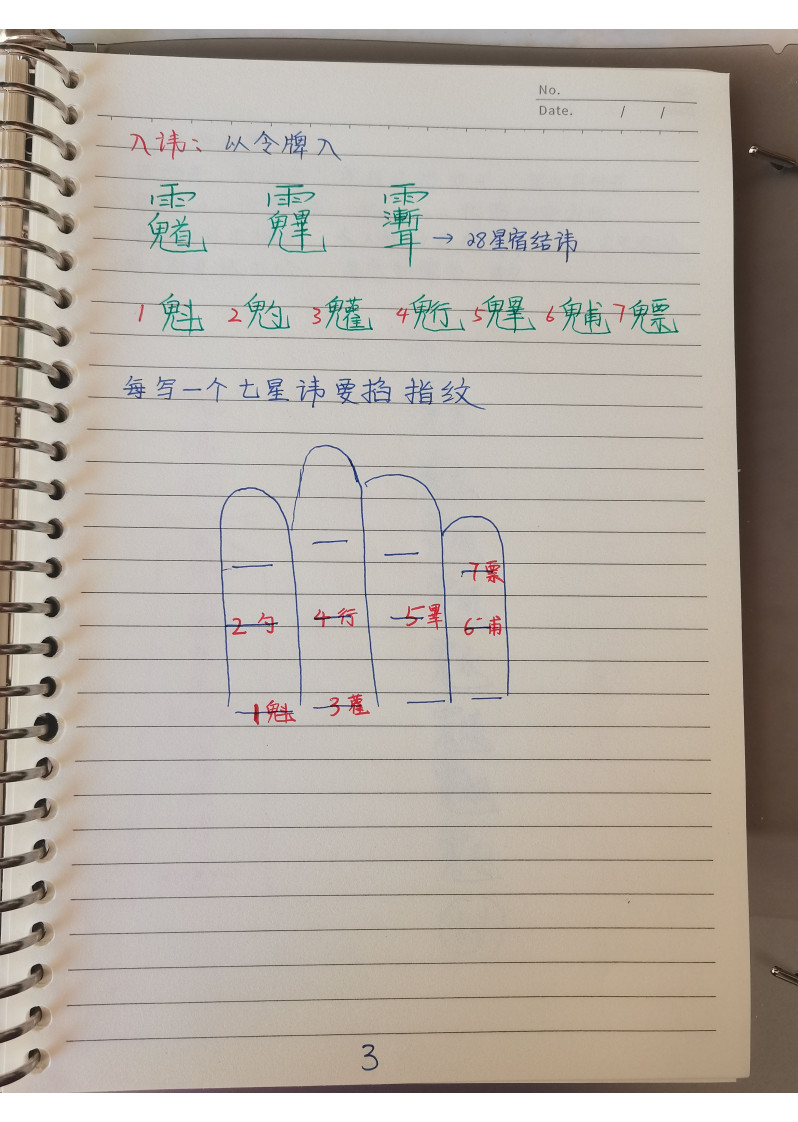 No.
Date. / /
入讳：以令牌入
→ 28星宿结讳
1魁 2䰢 3䰱 4䰢 5魓 6䰵 7魒
每写一个七星讳要掐指纹
7票
2勺 4行 5畢 6甫
1魁 3雚
3